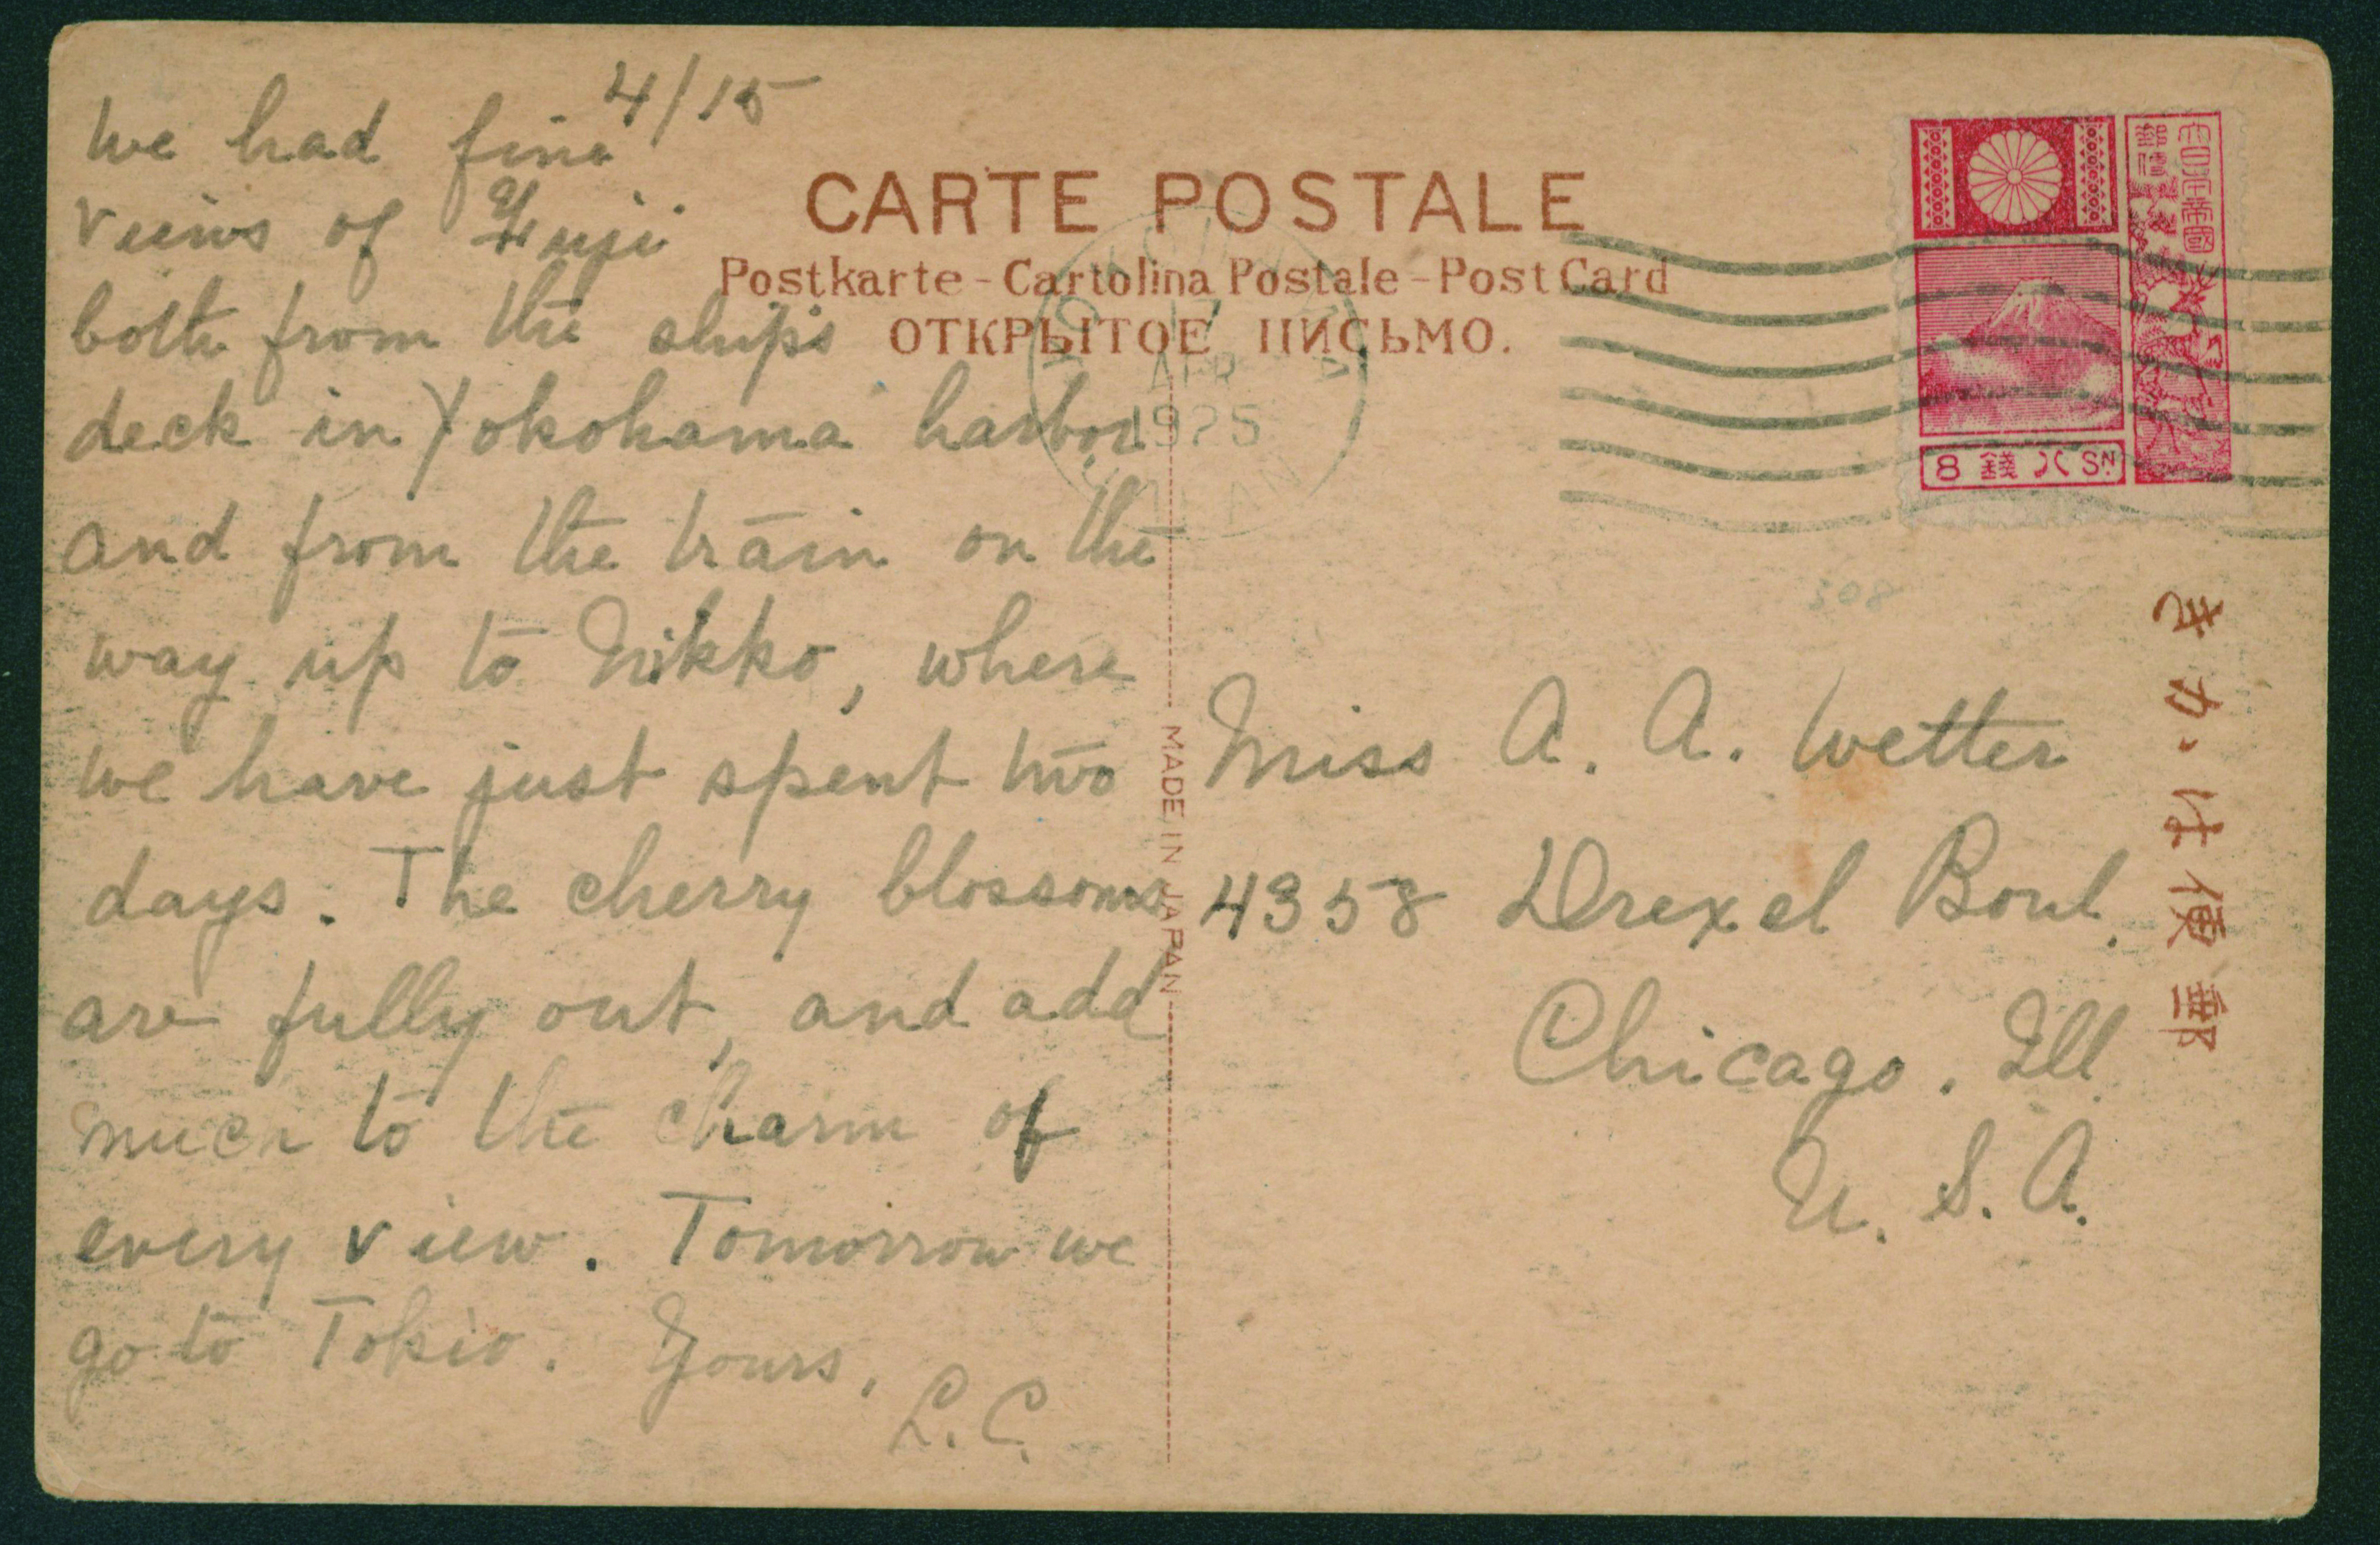 4/15
We had fine
views of Fuji
both from the ship's
deck in Yokohama harbor
and from the train on the
way up to Nikko, where
we have just spent two
days. The cherry blossoms
are fully out, and add
much to the charm of
every view. Tomorrow we
go to Tokio. Yours,
L.C.
CARTE POSTALE
Postkarte - Cartolina Postale - Post Card
ОТКРЫТОЕ ПИСЬМО.
17
APR
1925
JAPAN
大日本帝國
郵便
8 錢八 SN
308
MADE IN JAPAN
Miss A. A. Wetter
4358 Drexel Boul.
Chicago. Ill
U. S. A.
郵便はかき